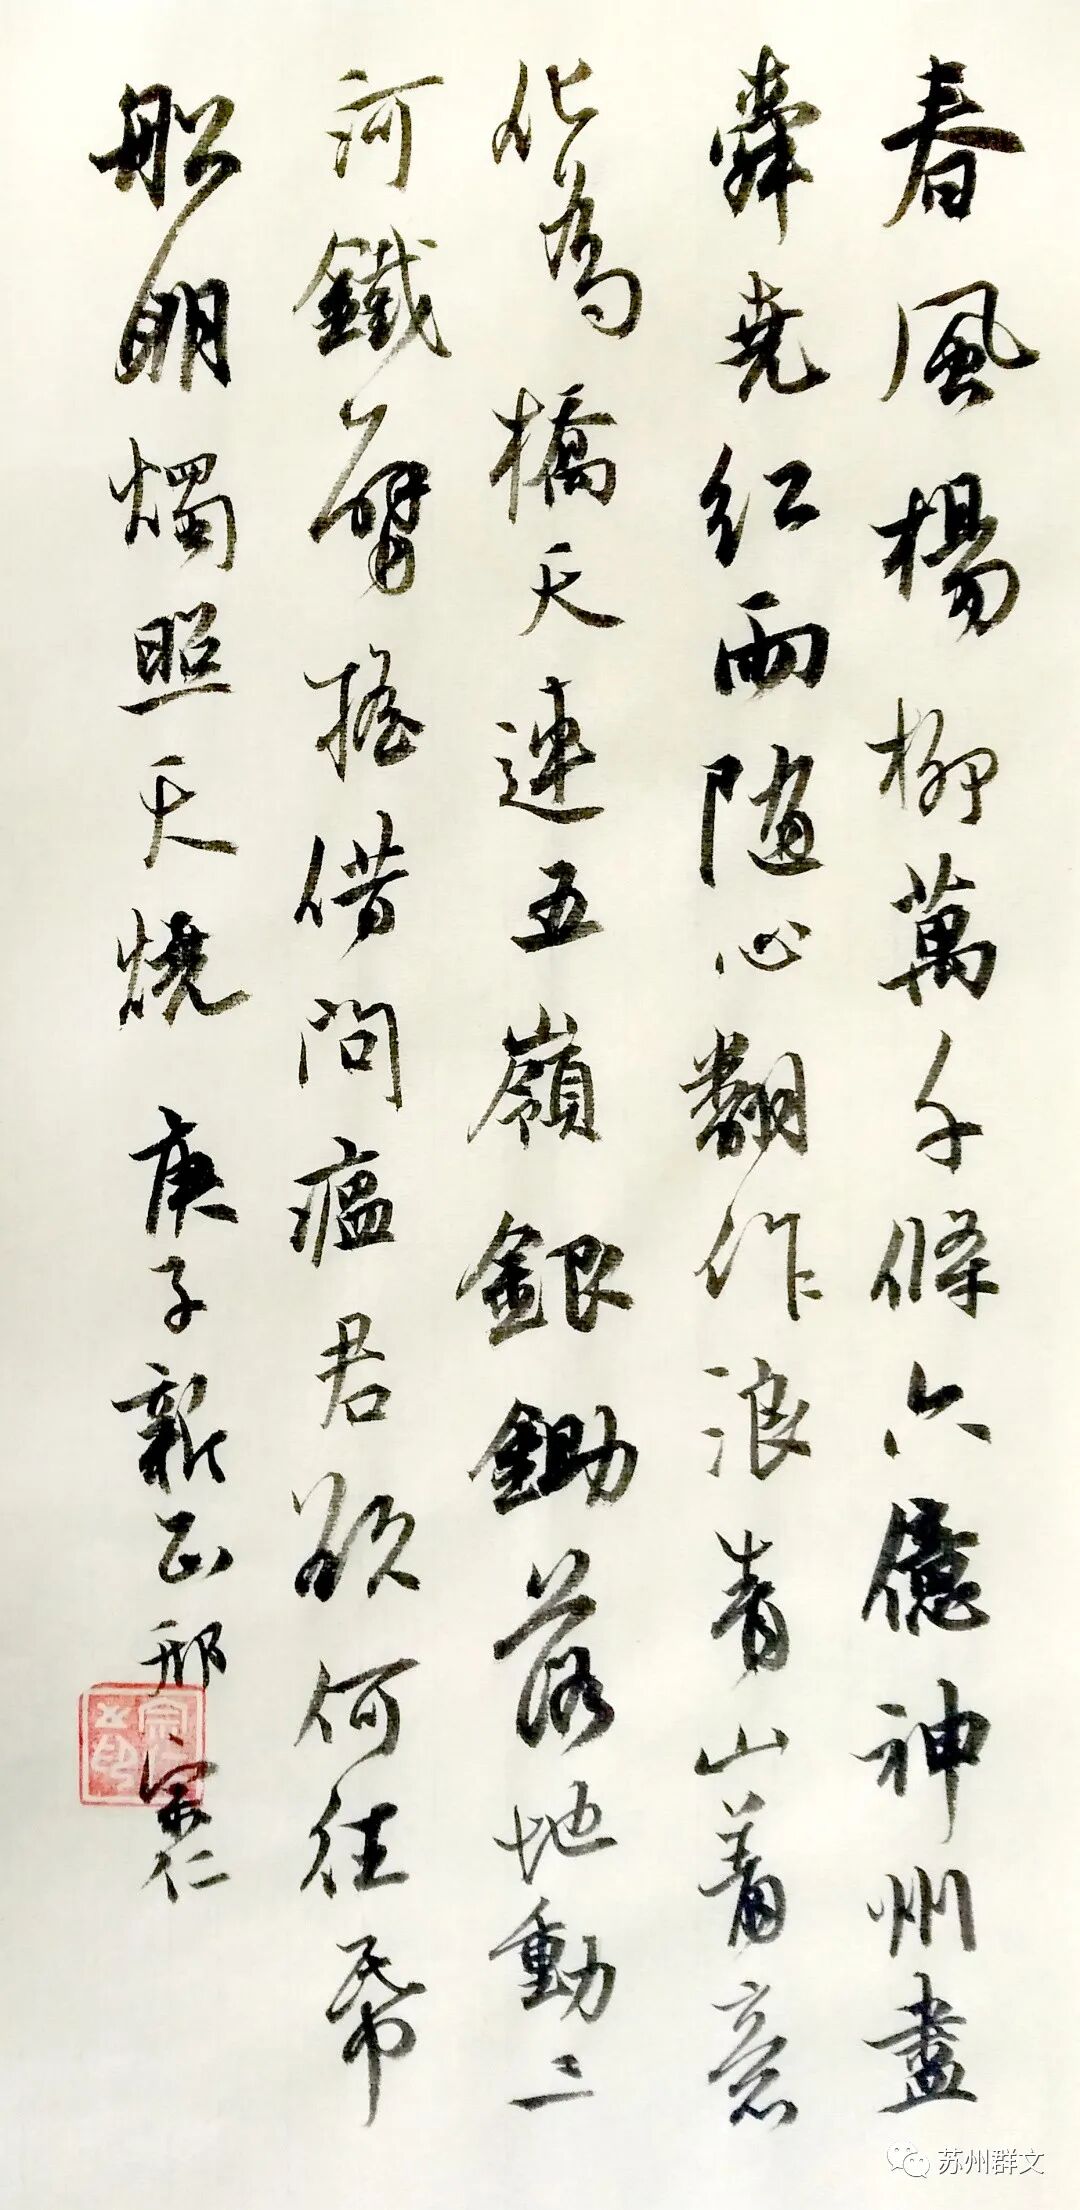 春風楊柳萬千條六億神州盡
舜堯紅雨隨心翻作浪青山着意
化為橋天連五嶺銀鋤落地動三
河鐵臂搖借問瘟君欲何往帋
船明燭照天燒 庚子新正邢宗仁
宗仁之印
苏州群文